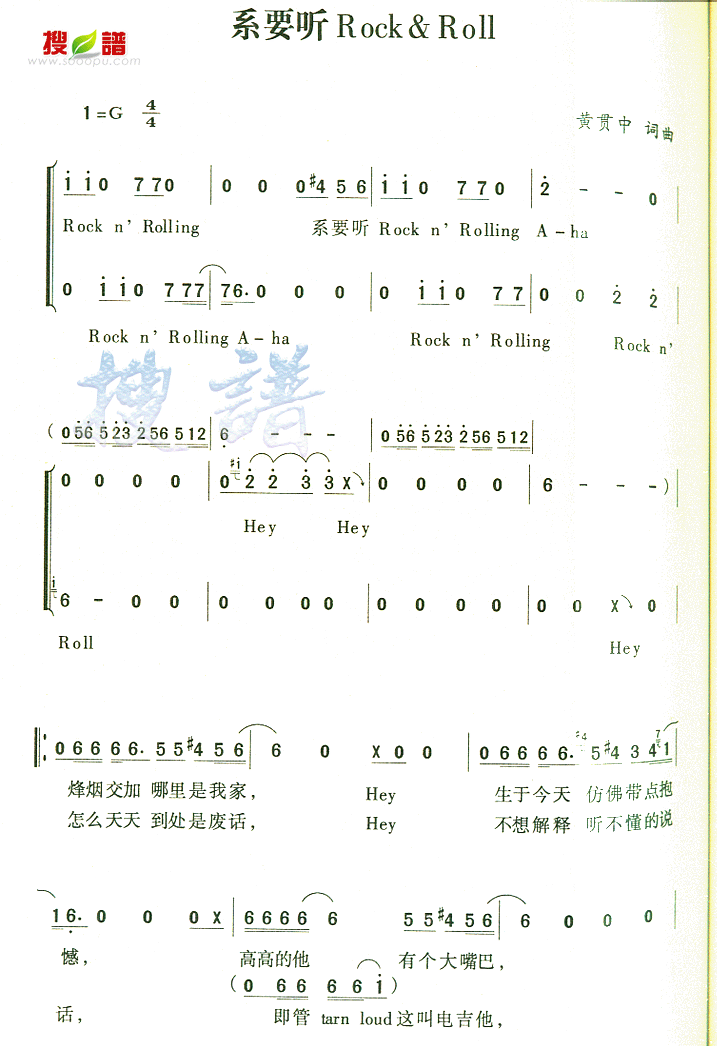 系要听 Rock & Roll
搜谱
www.sooopu.com
1=G 4/4
黄贯中 词曲
i i 0 7 7 0 | 0 0 0 #4 5 6 | i i 0 7 7 0 | 2 - - 0
Rock n' Rolling 系要听 Rock n' Rolling A-ha
0 i i 0 7 77 | 76. 0 0 0 | 0 i i 0 7 7 | 0 0 2 2
Rock n' Rolling A-ha Rock n' Rolling Rock n'
搜谱
( 0 56 5 23 2 56 5 12 | 6 - - - | 0 56 5 23 2 56 5 12
0 0 0 0 | 0 #i 2 2 3 3 X | 0 0 0 0 | 6 - - - )
Hey Hey
i 6 - 0 0 | 0 0 0 0 0 | 0 0 0 0 | 0 0 X 0
Roll Hey
0 6 6 6 6 6. 5 5 #4 5 6 | 6 0 X 0 0 | 0 6 6 6 6. #4 5 #4 3 4 7 1
烽烟交加 哪里是我家， Hey 生于今天 仿佛带点抱
怎么天天 到处是废话， Hey 不想解释 听不懂的说
1 6. 0 0 0 X | 6 6 6 6 6 6 5 5 #4 5 5 6 | 6 0 0 0
憾， 高高的他 有个大嘴巴，
( 0 6 6 6 6 i )
话， 即管 tarn loud 这叫电吉他，